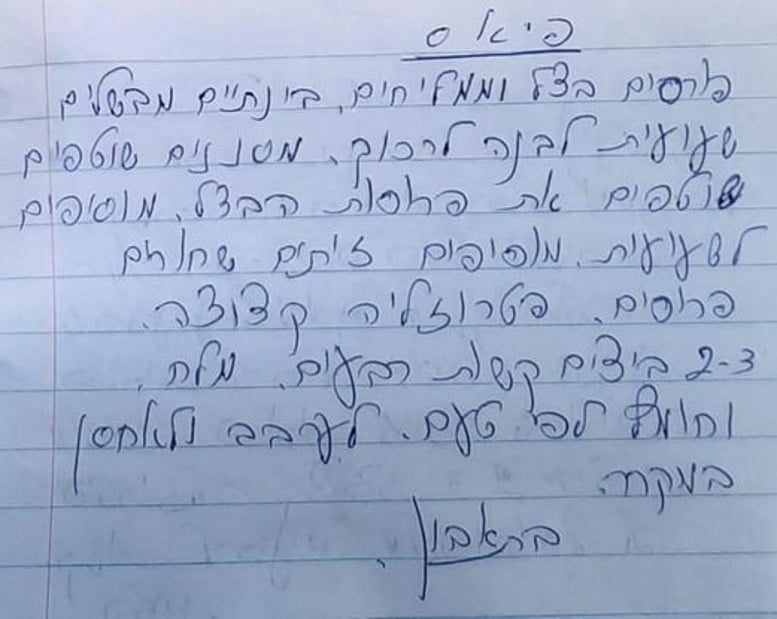 פיאס
פורסים בצל וממליחים, בינתיים מבשלים
שעועית לבנה לריכוך. מסננים שוטפים
שוטפים את פרוסות הבצל, מוסיפים
לשעועית. מוסיפים זיתים שחורים
פרוסים. פטרוזליה קצוצה.
2-3 ביצים קשות רבעים. מלח,
וחומץ לפי טעם. לערבב ולאחסן
במקרר.
בתאבון.